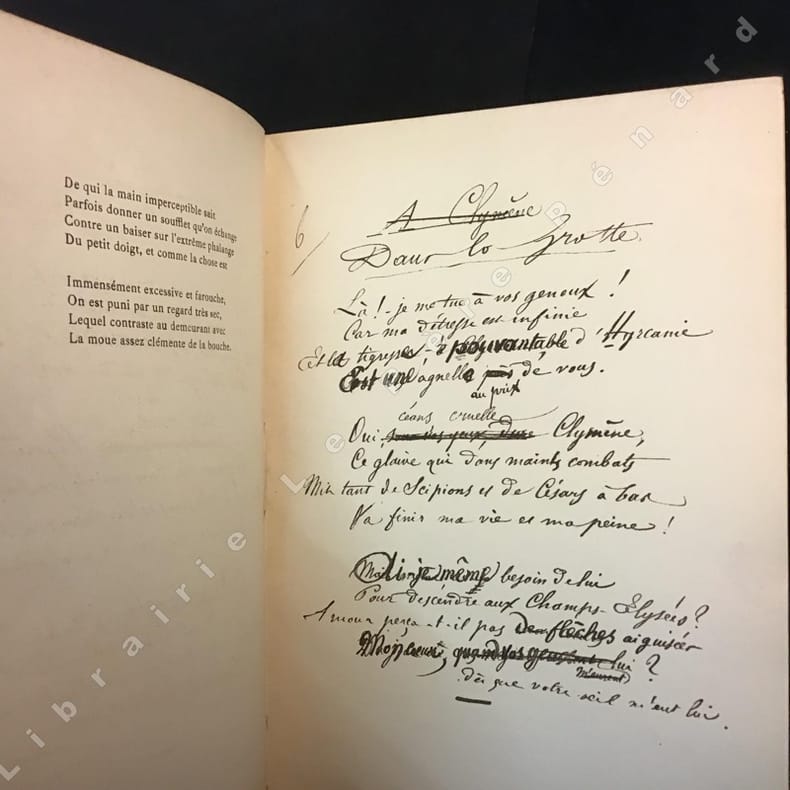 De qui la main imperceptible sait
Parfois donner un soufflet qu'on échange
Contre un baiser sur l'extrême phalange
Du petit doigt, et comme la chose est
Immensément excessive et farouche,
On est puni par un regard très sec,
Lequel contraste au demeurant avec
La moue assez clémente de la bouche.
6/
A Clymène
Dans la Grotte.
Là ! je me tue à vos genoux !
Car ma détresse est infinie
Et la tigresse épouvantable d'Hyrcanie
Est une agnelle au prix de vous.
céans cruelle
Oui, Clymène,
Ce glaive qui dans maints combats
Mit tant de Scipions et de Césars à bas
Va finir ma vie et ma peine !
Ai-je même besoin de lui
Pour descendre aux Champs-Elysées ?
Amour perça-t-il pas de flèches aiguisées
Mon cœur, quand vos yeux m'eurent lui ?
dès que votre œil m'eut lui.
Librairie Le Père Pénard